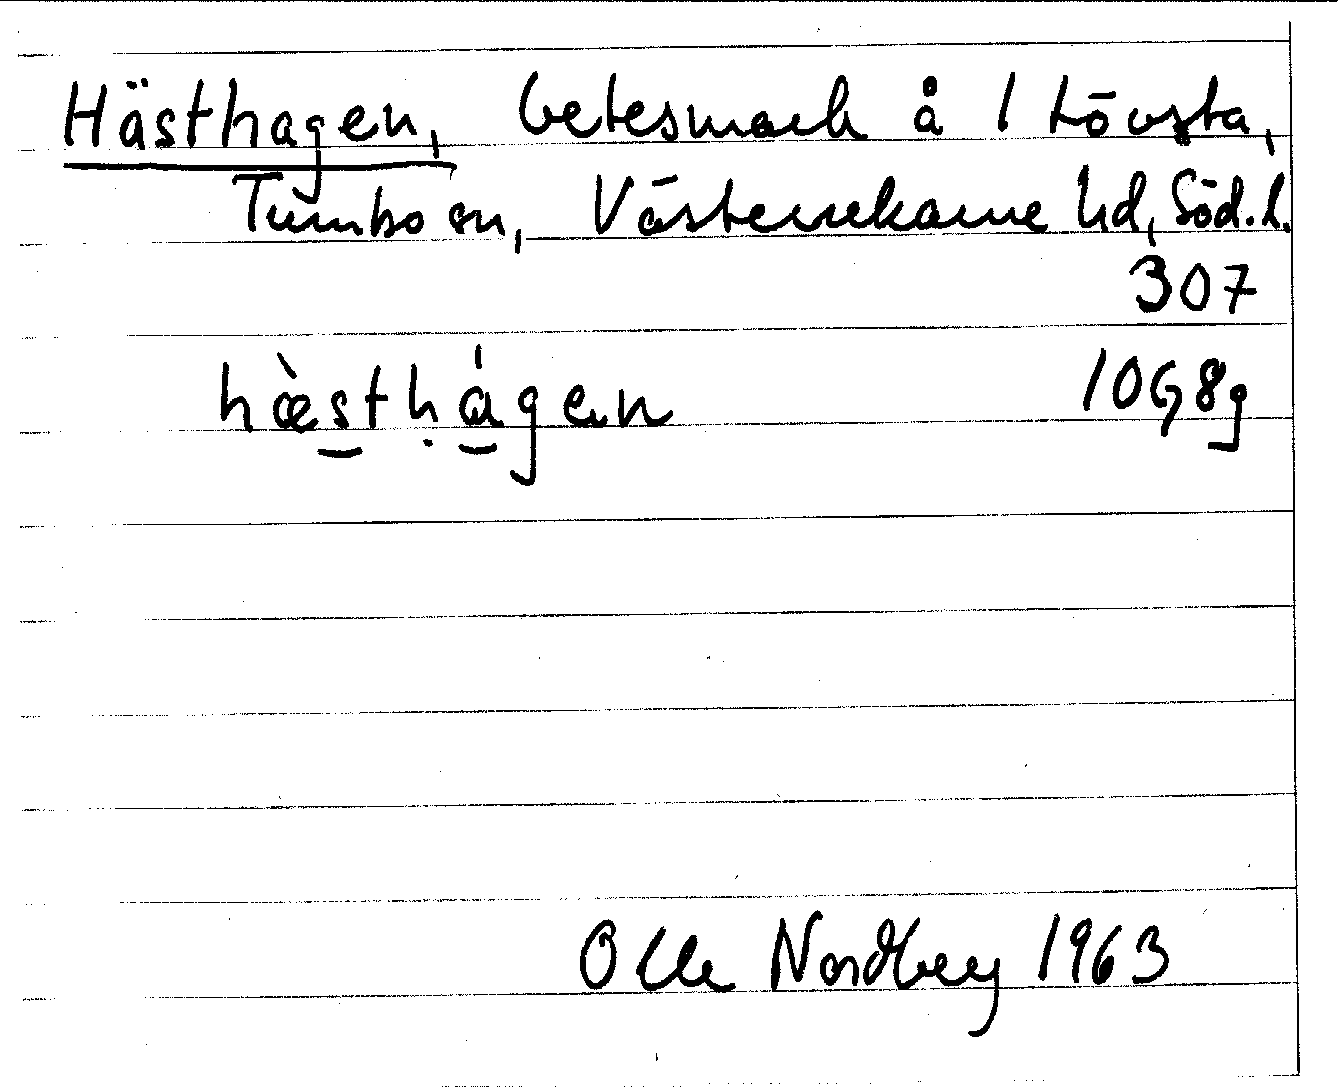 Hästhagen, betesmark å 1 Lövsta,
Tumbo sn, Västerrekarne hd, Söd. l.
307
hæ̀stḥágen 10G8g
Olle Nordberg 1963